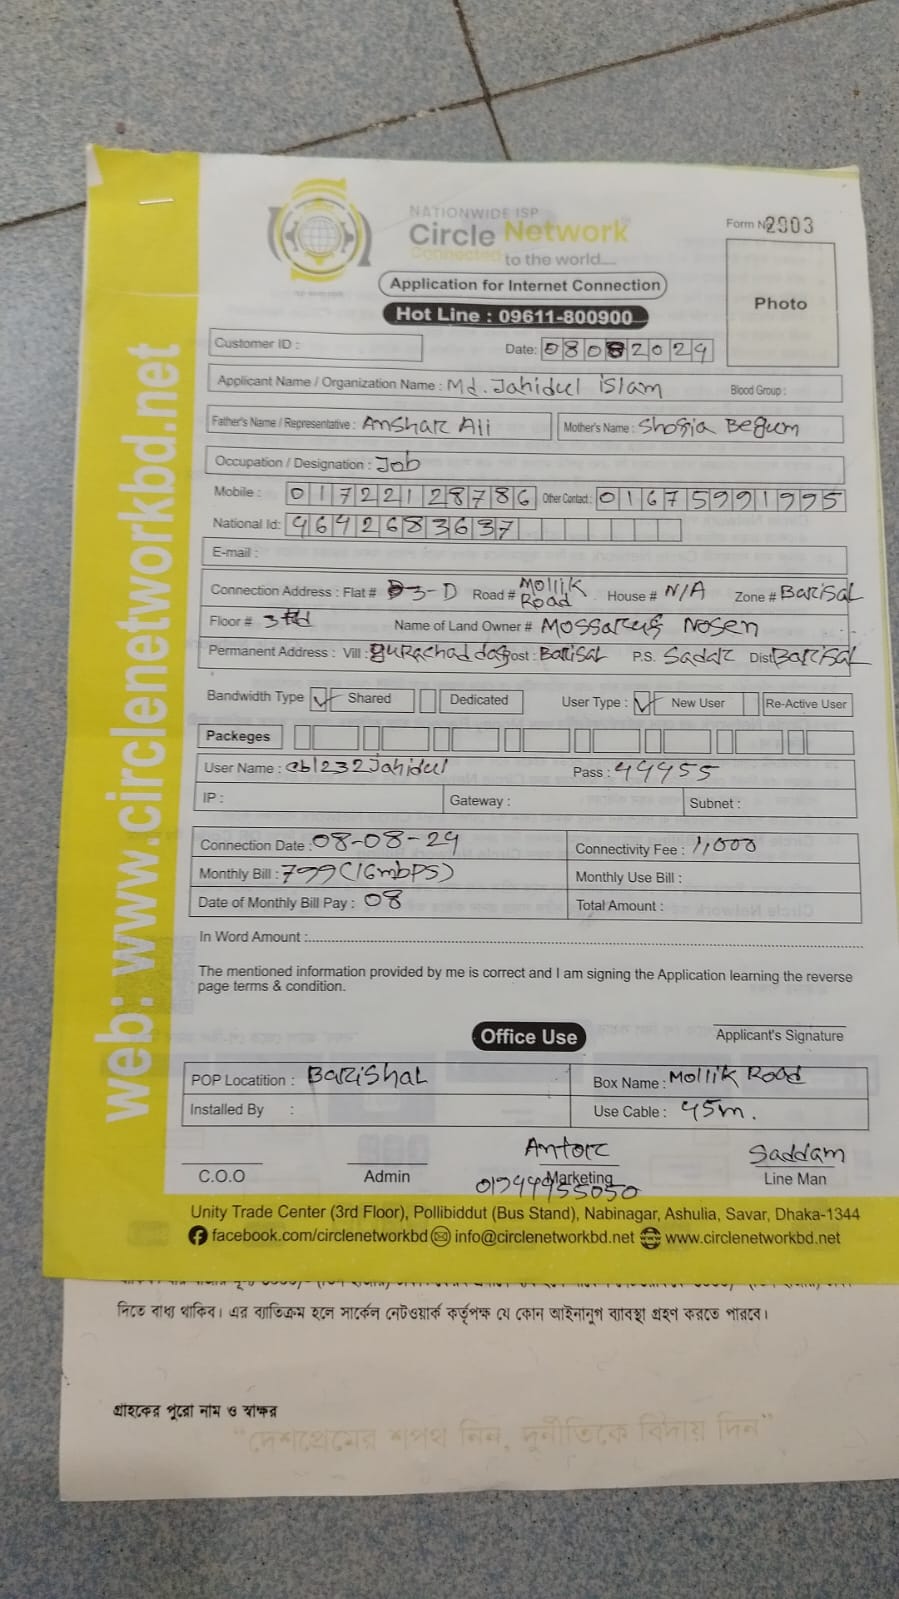 NATIONWIDE ISP
Circle Network
Connected to the world....
Form No 2903
Application for Internet Connection
Hot Line : 09611-800900
Photo
Customer ID :
Date: 08082024
Applicant Name / Organization Name : Md. Jahidul islam Blood Group :
Father's Name / Representative : Anshar Ali Mother's Name : Shogia Begum
Occupation / Designation : Job
Mobile : 01722128786 Other Contact : 01675991995
National Id: 4642683637
E-mail :
Connection Address : Flat # 3-D Road # Mollik Road House # N/A Zone # Barisal
Floor # 3rd Name of Land Owner # Nosen
Permanent Address : Vill : Post : Barisal P.S. Sadar Dist Barisal
Bandwidth Type Shared Dedicated User Type : New User Re-Active User
Packeges
User Name : cbl232Jahidul Pass : 44455
IP : Gateway : Subnet :
Connection Date : 08-08-24 Connectivity Fee : 1,000
Monthly Bill : 799 (16mbps) Monthly Use Bill :
Date of Monthly Bill Pay : 08 Total Amount :
In Word Amount :
The mentioned information provided by me is correct and I am signing the Application learning the reverse
page terms & condition.
Office Use
Applicant's Signature
POP Locatition : Barishal Box Name : Mollik Road
Installed By : Use Cable : 45m.
Antor Saddam
C.O.O Admin Marketing Line Man
01744955050
Unity Trade Center (3rd Floor), Pollibiddut (Bus Stand), Nabinagar, Ashulia, Savar, Dhaka-1344
facebook.com/circlenetworkbd info@circlenetworkbd.net www.circlenetworkbd.net
web: www.circlenetworkbd.net
দিতে বাধ্য থাকিব। এর ব্যতিক্রম হলে সার্কেল নেটওয়ার্ক কর্তৃপক্ষ যে কোন আইনানুগ ব্যাবস্থা গ্রহণ করতে পারবে।
গ্রাহকের পুরো নাম ও স্বাক্ষর
"দেশপ্রেমের শপথ নিন, দুর্নীতিকে বিদায় দিন"